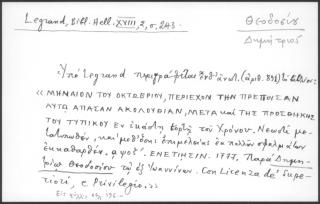 Legrand, Bibl. Hell. XVIII, 2, σ. 243.
Θεοδοσίου
Δημήτριος
Ὑπὸ Legrand περιγράφεται ἐνθ' ἀνωτ. (ἀριθ. 891)
«ΜΗΝΑΙΟΝ ΤΟΥ ΟΚΤΩΒΡΙΟΥ, ΠΕΡΙΕΧΟΝ ΤΗΝ ΠΡΕΠΟΥΣΑΝ
ΑΥΤΩ ΑΠΑΣΑΝ ΑΚΟΛΟΥΘΙΑΝ, ΜΕΤΑ ΚΑΙ ΤΗΣ ΠΡΟΣΘΗΚΗΣ
ΤΟΥ ΤΥΠΙΚΟΥ Ἐν ἑκάστῃ ἑορτῇ τοῦ Χρόνου. Νεωστὶ με-
τατυπωθὲν, καὶ μεθ' ὅσης ἐπιμελείας ἐκ πολλῶν σφαλμάτων
ἐκκαθαρθέν. ͵αψοζʹ. ΕΝΕΤΙΗΣΙΝ. 1777. Παρὰ Δημη-
τρίῳ Θεοδοσίου τῷ ἐξ Ἰωαννίνων. Con Licenza de' Supe-
riori, e Privilegio.»